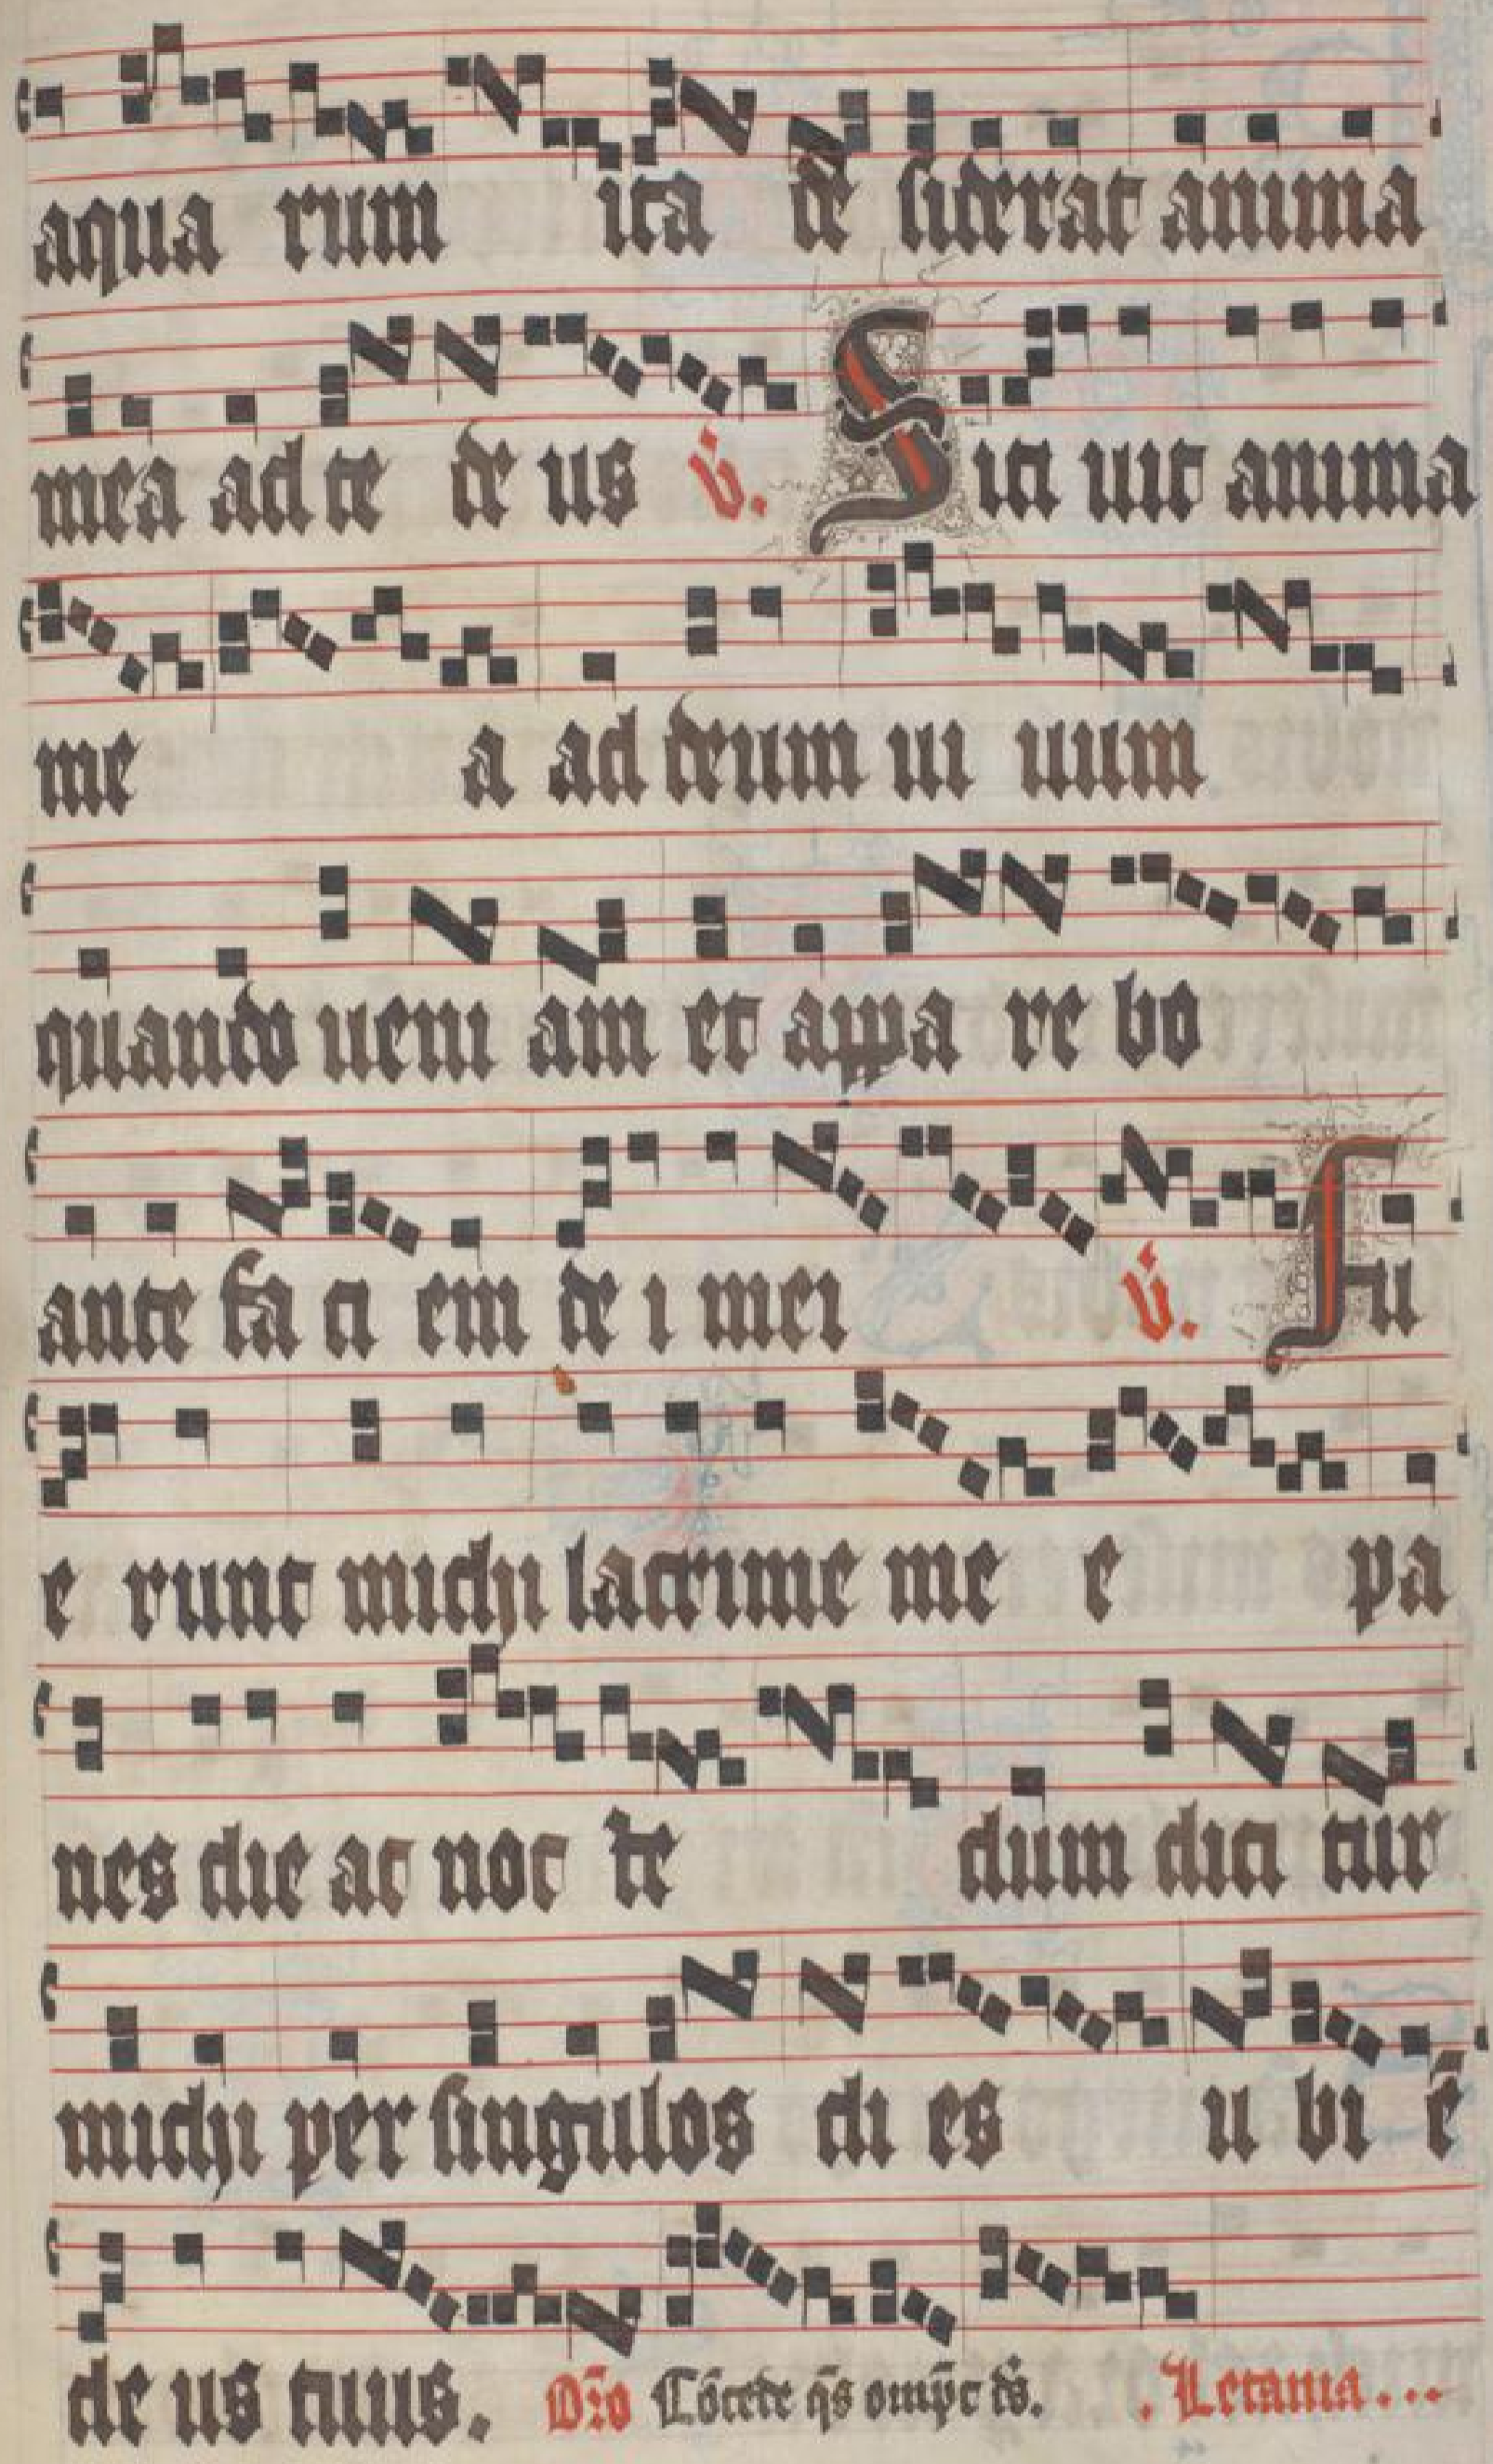 aqua rum ita de siderat anima
mea ad te de us v̇. Siti uit anima
me a ad deum ui uum
quando ueni am et appa re bo
ante fa ci em de i mei v̇. Fu
e runt michi lacrime me e pa
nes die ac noc te dum dici tur
michi per singulos di es u bi ē
de us tuus. Oro Cōcede q̄s omp̄t ds. . Letania...